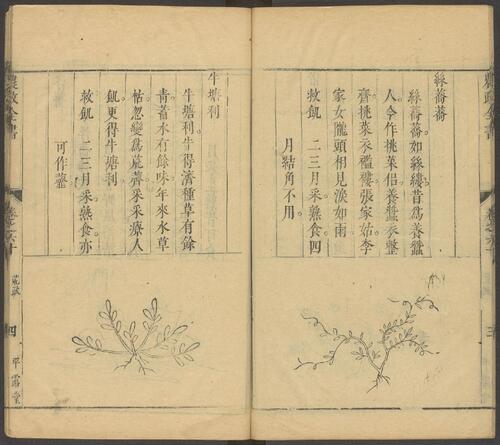 農政全書
卷之六十
三
絲蕎蕎
絲蕎蕎如絲縷。昔爲養蠶
人。今作挑菜侶。養蠶衣整
齊。挑菜衣襤褸。張家姑。李
家女。隴頭相見淚如雨
救飢 二三月采。熟食。四
月結角不用。
牛塘利
牛塘利。牛得濟。種草有餘
青。蓄水有餘味。年來水草
枯。忽變爲荒薺。采采療人
飢。更得牛塘利。
救飢 二三月采。熟食。亦
可作虀
農政全書
卷之六十
荒政
四
平露堂